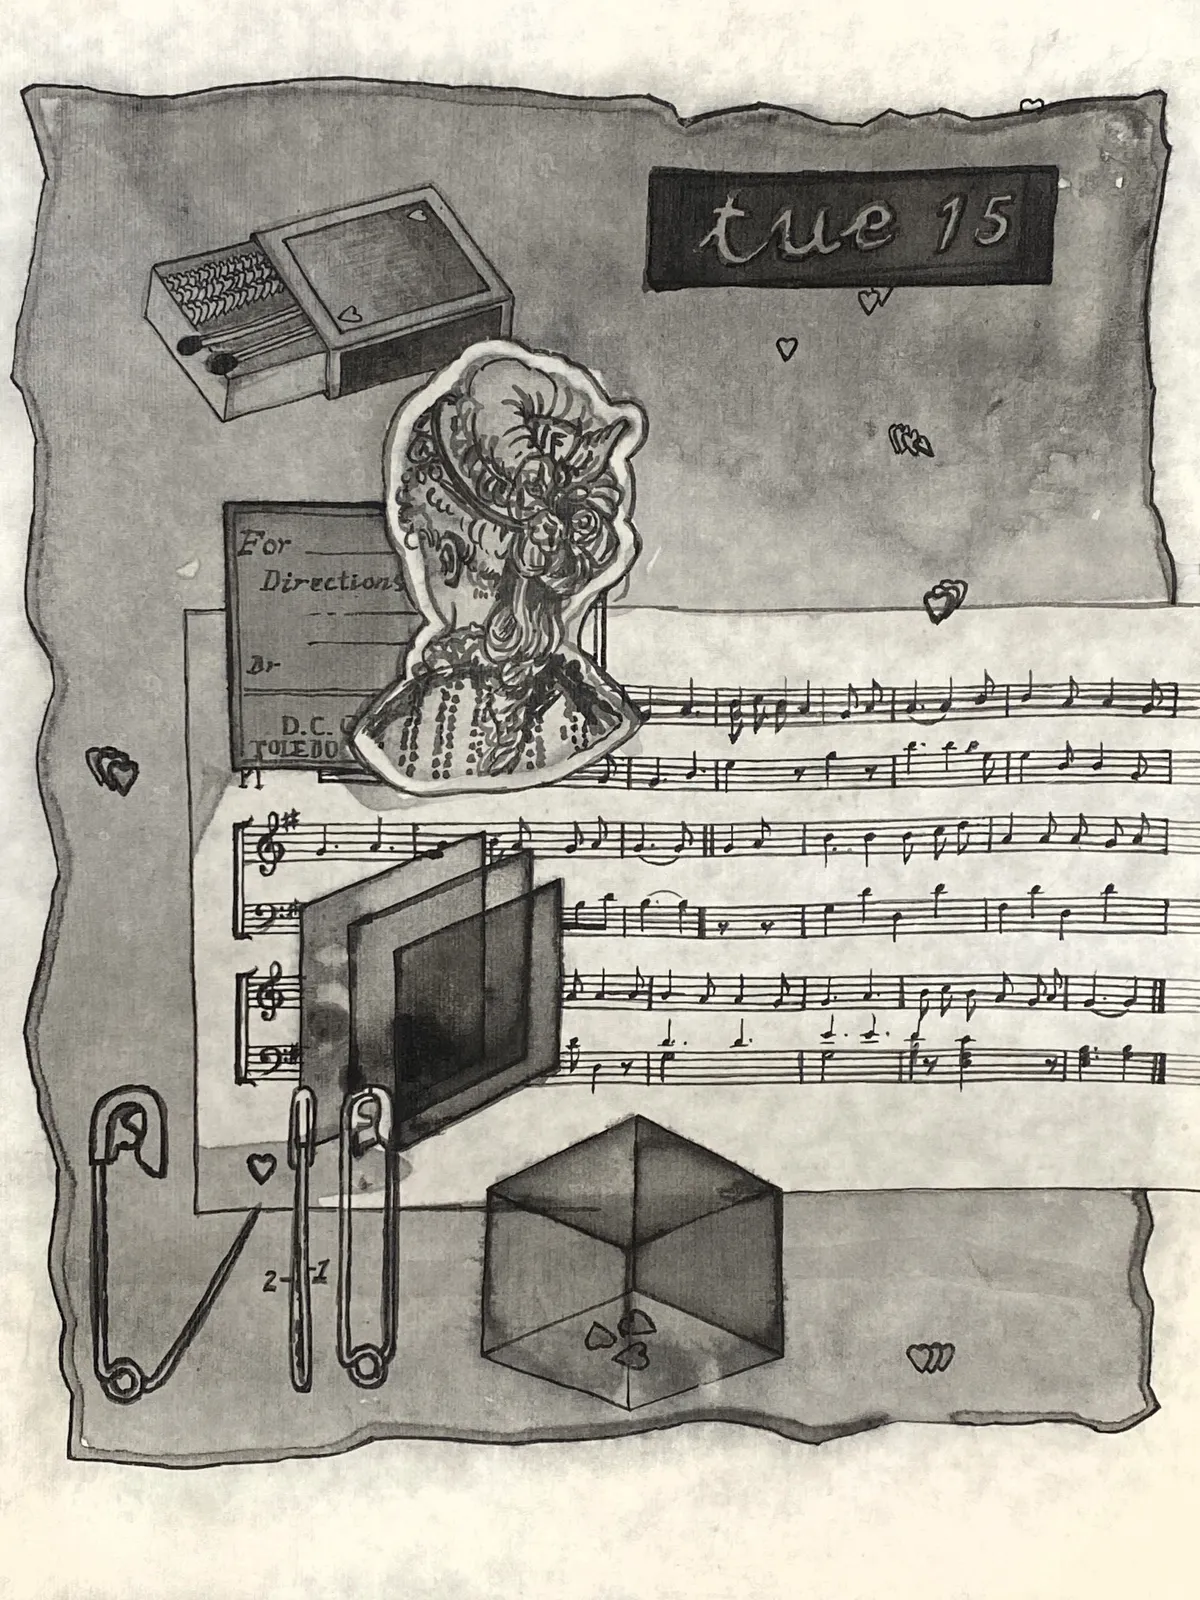 tue 15
For
Directions
Dr
D.C.
TOLEDO
2-1